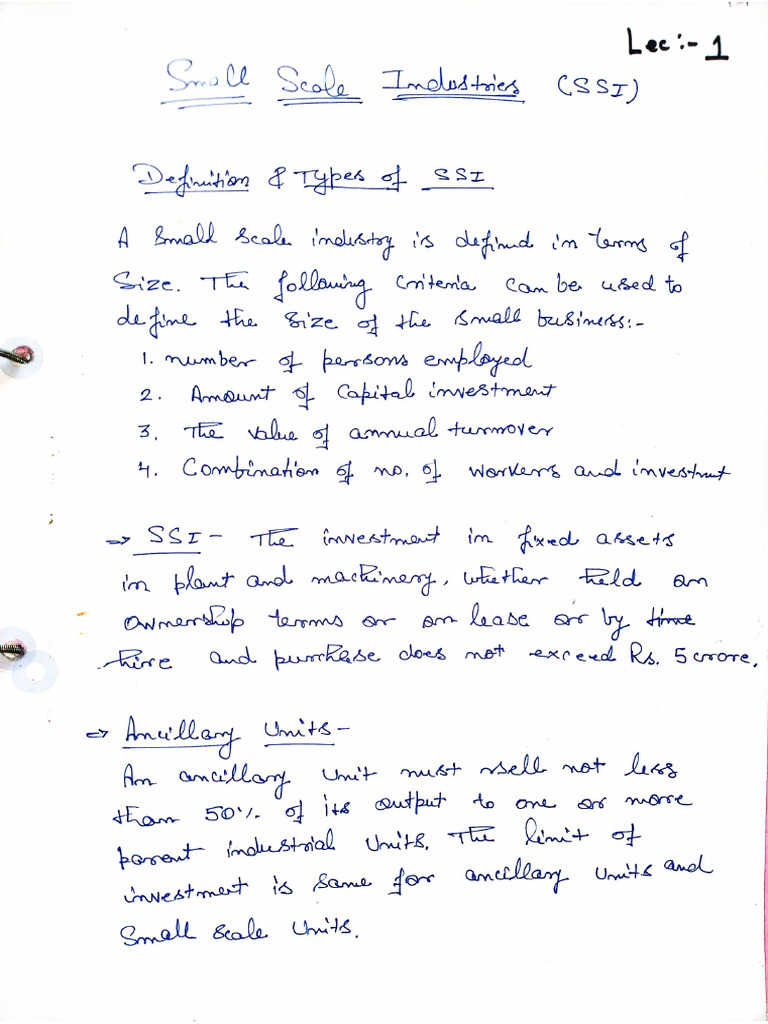 Lec :- 1
Small Scale Industries (SSI)
Definition & Types of SSI
A small scale industry is defined in terms of
Size. The following criteria can be used to
define the size of the small business:-
1. number of persons employed
2. Amount of Capital investment
3. The value of annual turnover
4. Combination of no. of workers and investmnt
→ SSI - The investment in fixed assets
in plant and machinery, whether held on
ownership terms or on lease or by time
hire and purchase does not exceed Rs. 5 crore.
→ Ancillary Units -
An ancillary unit must sell not less
than 50% of its output to one or more
parent industrial units. The limit of
investment is same for ancillary units and
Small Scale Units.